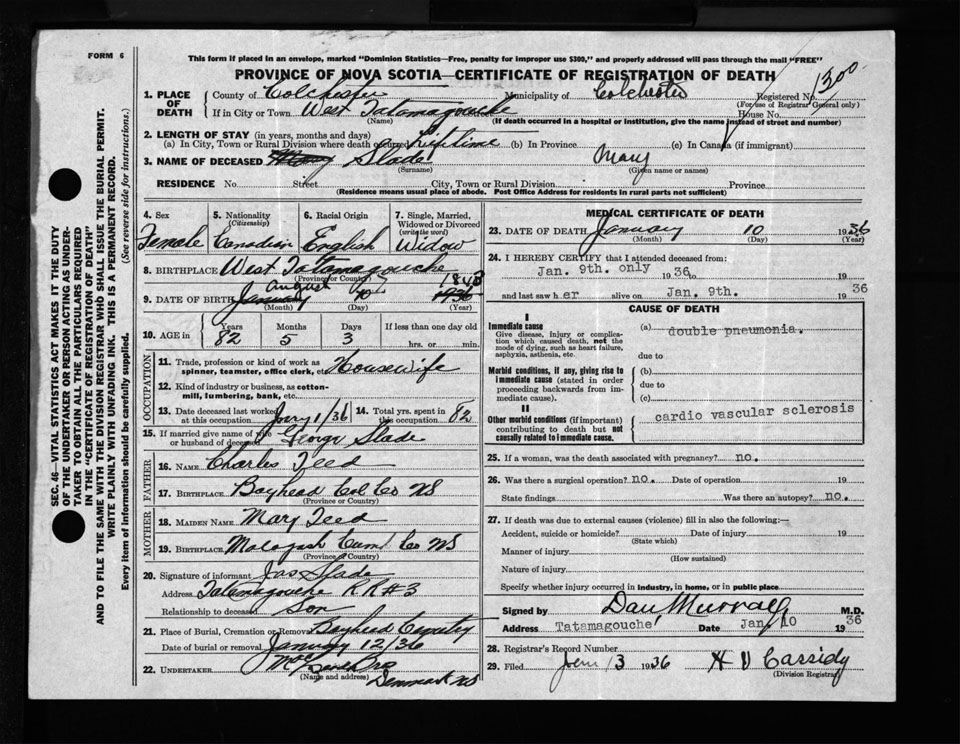 FORM 6
This form if placed in an envelope, marked "Dominion Statistics—Free, penalty for improper use $300," and properly addressed will pass through the mail "FREE"
PROVINCE OF NOVA SCOTIA—CERTIFICATE OF REGISTRATION OF DEATH
1300
1. PLACE OF DEATH County of Colchester Municipality of Colchester Registered No.
(For use of Registrar General only)
If in City or Town West Tatamagouche House No.
(Name) (If death occurred in a hospital or institution, give the name instead of street and number)
2. LENGTH OF STAY (in years, months and days)
(a) In City, Town or Rural Division where death occurred Lifetime (b) In Province (c) In Canada (if immigrant)
3. NAME OF DECEASED Slade Mary
(Surname) (Given name or names)
RESIDENCE No. Street City, Town or Rural Division Province
(Residence means usual place of abode. Post Office Address for residents in rural parts not sufficient)
4. Sex Female
5. Nationality (Citizenship) Canadian
6. Racial Origin English
7. Single, Married, Widowed or Divorced (write the word) Widow
8. BIRTHPLACE West Tatamagouche
(Province or Country)
9. DATE OF BIRTH January August 10 1936
(Month) (Day) (Year)
10. AGE in Years 82 Months 5 Days 3 If less than one day old hrs. or min.
OCCUPATION
11. Trade, profession or kind of work as spinner, teamster, office clerk, etc. Housewife
12. Kind of industry or business, as cotton-mill, lumbering, bank, etc.
13. Date deceased last worked at this occupation Jany 1/36 14. Total yrs. spent in this occupation 82
15. If married give name of wife or husband of deceased George Slade
FATHER
16. NAME Charles Teed
17. BIRTHPLACE Bayhead Col Co NS
(Province or Country)
MOTHER
18. MAIDEN NAME Mary Teed
19. BIRTHPLACE Malagash Cum Co NS
(Province or Country)
20. Signature of informant Jas Slade
Address Tatamagouche RR#3
Relationship to deceased Son
21. Place of Burial, Cremation or Removal Bayhead Cemetry
Date of burial or removal January 12/36
22. UNDERTAKER
(Name and address) Denmark NS
MEDICAL CERTIFICATE OF DEATH
23. DATE OF DEATH January 10 1936
(Month) (Day) (Year)
24. I HEREBY CERTIFY that I attended deceased from:
Jan. 9th. only 1936 to 19
and last saw her alive on Jan. 9th. 1936
CAUSE OF DEATH
I
Immediate cause
Give disease, injury or complication which caused death, not the mode of dying, such as heart failure, asphyxia, asthenia, etc.
(a) double pneumonia.
due to
Morbid conditions, if any, giving rise to immediate cause (stated in order proceeding backwards from immediate cause).
(b)
due to
(c)
II
Other morbid conditions (if important) contributing to death but not causally related to immediate cause.
cardio vascular sclerosis
25. If a woman, was the death associated with pregnancy? no.
26. Was there a surgical operation? no. Date of operation 19
State findings Was there an autopsy? no.
27. If death was due to external causes (violence) fill in also the following:—
Accident, suicide or homicide? Date of injury 19
(State which)
Manner of injury
(How sustained)
Nature of injury
Specify whether injury occurred in industry, in home, or in public place
Signed by Dan Murray M.D.
Address Tatamagouche Date Jan. 10 1936
28. Registrar's Record Number
29. Filed Jan 13 1936 H V Cassidy
(Division Registrar)
SEC. 46—VITAL STATISTICS ACT MAKES IT THE DUTY
OF THE UNDERTAKER OR PERSON ACTING AS UNDER-
TAKER TO OBTAIN ALL THE PARTICULARS REQUIRED
IN THE "CERTIFICATE OF REGISTRATION OF DEATH"
AND TO FILE THE SAME WITH THE DIVISION REGISTRAR WHO SHALL ISSUE THE BURIAL PERMIT.
WRITE PLAINLY WITH UNFADING INK. THIS IS A PERMANENT RECORD.
Every item of information should be carefully supplied. (See reverse side for instructions.)